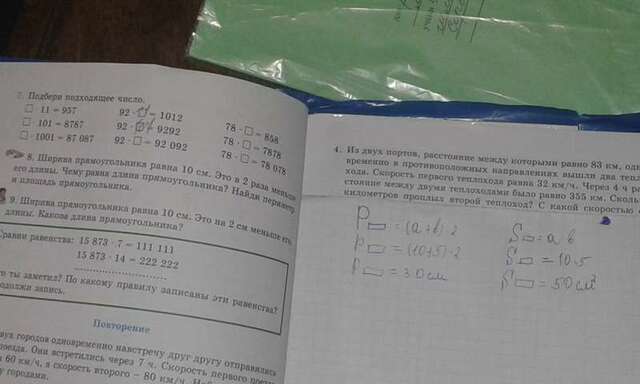 7. Подбери подходящее число.
□ · 11 = 957
□ · 101 = 8787
□ · 1001 = 87 087
92 · □ = 1012
92 · □ = 9292
92 · □ = 92 092
78 · □ = 858
78 · □ = 7878
78 · □ = 78 078
8. Ширина прямоугольника равна 10 см. Это в 2 раза меньше
его длины. Чему равна длина прямоугольника? Найди периметр
и площадь прямоугольника.
9. Ширина прямоугольника равна 10 см. Это на 2 см меньше его
длины. Какова длина прямоугольника?
Сравни равенства: 15 873 · 7 = 111 111
15 873 · 14 = 222 222
то ты заметил? По какому правилу записаны эти равенства?
одолжи запись.
Повторение
двух городов одновременно навстречу друг другу отправились
поезда. Они встретились через 7 ч. Скорость первого
60 км/ч, а скорость второго – 80 км/ч.
городами.
4. Из двух портов, расстояние между которыми равно 83 км,
временно в противоположных направлениях вышли два
хода. Скорость первого теплохода равна 32 км/ч. Через 4 ч
стояние между двумя теплоходами было равно 355 км.
километров проплыл второй теплоход? С какой скоростью
P▭ = (a+b)·2
P▭ = (10+5)·2
P▭ = 30 см
S▭ = a b
S▭ = 10·5
S▭ = 50 см²